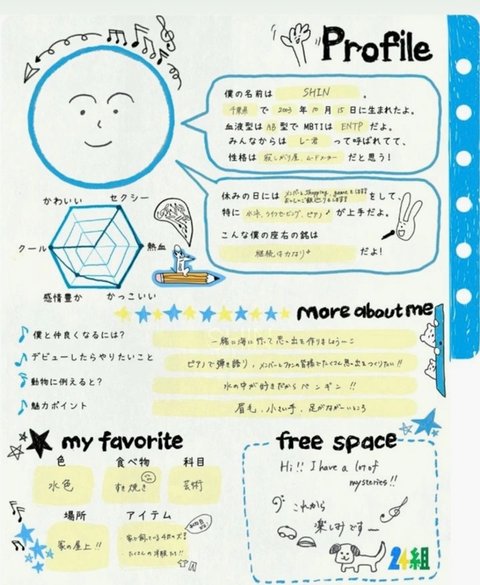 Profile
僕の名前は SHIN 。
千葉県 で 2003 年 10 月 15 日に生まれたよ。
血液型は AB 型で MBTIは ENTP だよ。
みんなからは し〜君 って呼ばれてて、
性格は 寂しがり屋、ムードメーカー だと思う！
休みの日には をして、
特に 水泳、ライフセービング、ピアノ が上手だよ。
こんな僕の座右の銘は
継続は力なり だよ！
かわいい
セクシー
クール
熱血
感情豊か
かっこいい
More about me
僕と仲良くなるには？ 一緒に海に行って思い出を作りましょう〜
デビューしたらやりたいこと ピアノで弾き語り、メンバーとファンの皆様でたくさん思い出をつくりたい!!
動物に例えると？ 水の中が好きだからペンギン!!
魅力ポイント 眉毛、小さい手、足がながーいところ
my favorite
色
食べ物
科目
水色
すき焼き
芸術
場所
アイテム
家の屋上!!
家で飼ってる4匹のズ!
たくさんの洋服たち!!
free space
Hi!! I have a lot of
mysteries!!
これから
楽しみです〜
24組